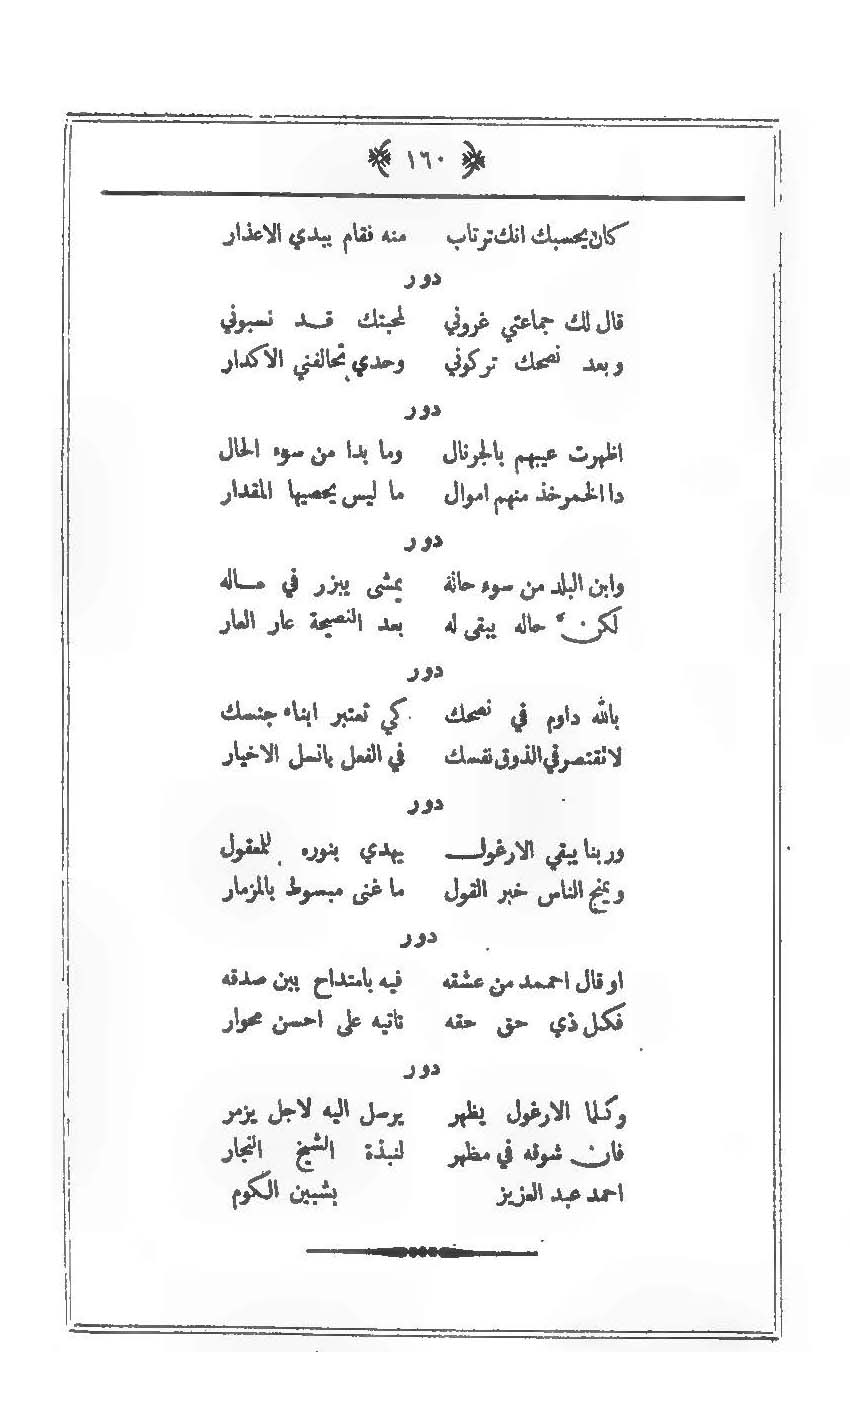 ١٦٠
كان يحسبك انك ترتاب منه فقام يبدي الاعذار
دور
قال لك جماعتي غروني لمحبتك قد نسبوني
وبعد نصحك تركوني وحدي تحالفني الاكدار
دور
اظهرت عيبهم بالجرنال وما بدا من سوء الحال
دا الخمر خذ منهم اموال ما ليس يحصيها المقدار
دور
وابن البلد من سوء حاله يمشى يبزر في ماله
لكن حاله يبقى له بعد النصيحة عار العار
دور
بالله داوم في نصحك كي تعتبر ابناء جنسك
لا تقتصر في الذوق نفسك في الفعل يا نسل الاخيار
دور
وربنا يبقي الارغول يهدي بنوره للمعقول
ويمنح الناس خير القول ما غنى مبسوط بالمزمار
دور
او قال احمد من عشقه فيه بامتداح بين صدقه
فكل ذي حق حقه تاتيه على احسن محوار
دور
وكلما الارغول يظهر يرسل اليه لاجل يزمر
فان شوقه في مظهر لنبذة الشيخ النجار
احمد عبد العزيز بشبين الكوم